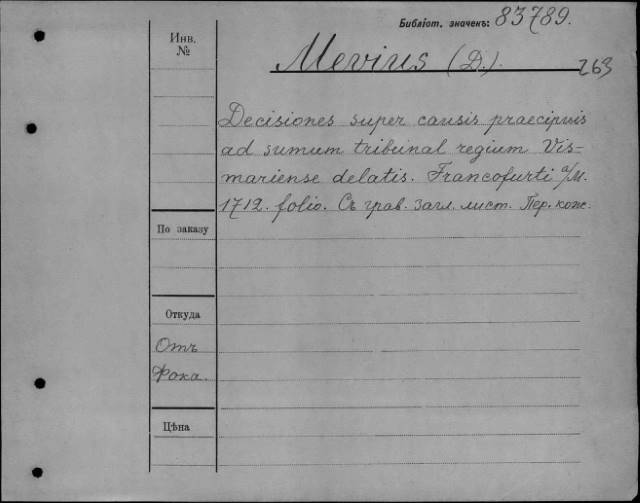 Библіот. значекъ: 83789.
Инв.
№
Mevius (D.). 263
Decisiones super causis praecipuis
ad sumum tribunal regium Vis=
mariense delatis. Francofurti a/M.
1712. folio. Съ грав. загл. лист. Пер. кож.
По заказу
Откуда
Отъ
Фока.
Цѣна